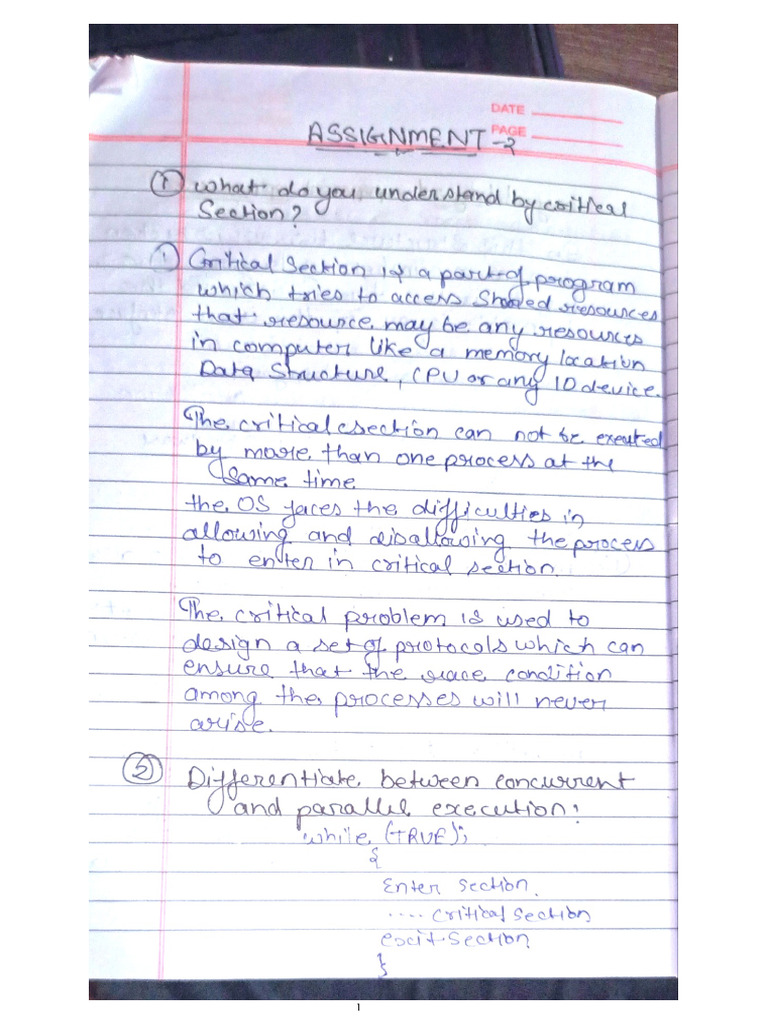 DATE
PAGE
ASSIGNMENT-2
① What do you understand by critical
Section?
① Critical Section is a part of program
which tries to access Shared resources
that resource may be any resources
in computer like a memory location
Data Structure, CPU or any IO device.
The critical csection can not be exeuted
by more than one process at the
same time
the OS faces the difficulties in
allowing and disallowing the process
to enter in critical section.
The critical problem is used to
design a set of protocols which can
ensure that the race condition
among the processes will never
arise.
② Differentiate between concurrent
and parallel execution:
while (TRUE);
{
Enter section.
.... critical section
exit-section
}
1